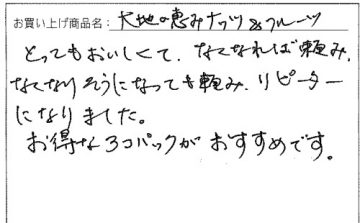 お買い上げ商品名：大地の恵みナッツ&フルーツ
とってもおいしくて、なくなれば頼み、
なくなりそうになっても頼み、リピーター
になりました。
お得な3コパックがおすすめです。